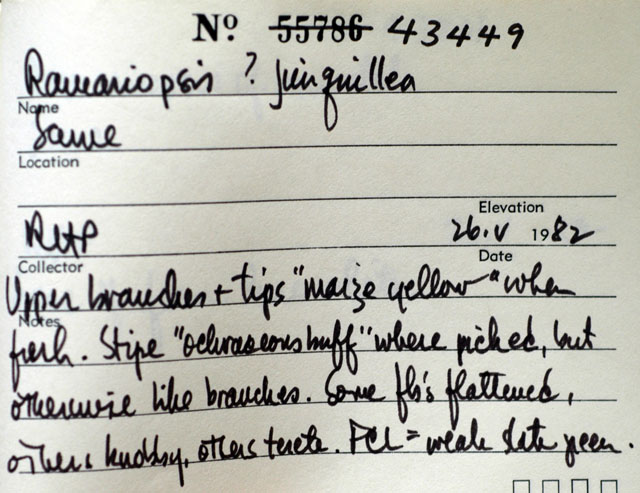 Nº 55786 43449
Ramariopsis ? junquillea
Name
Same
Location
Elevation
RHP 26.V 1982
Collector Date
Upper branches + tips "maize yellow" when
Notes
fresh. Stipe "ochraceous buff" where picked, but
otherwise like branches. Some fb's flattened,
others knobby, others terete. FCL = weak slate green.